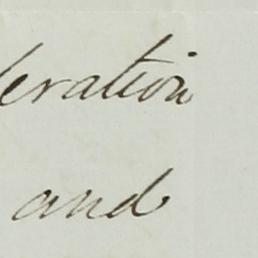 eration
and